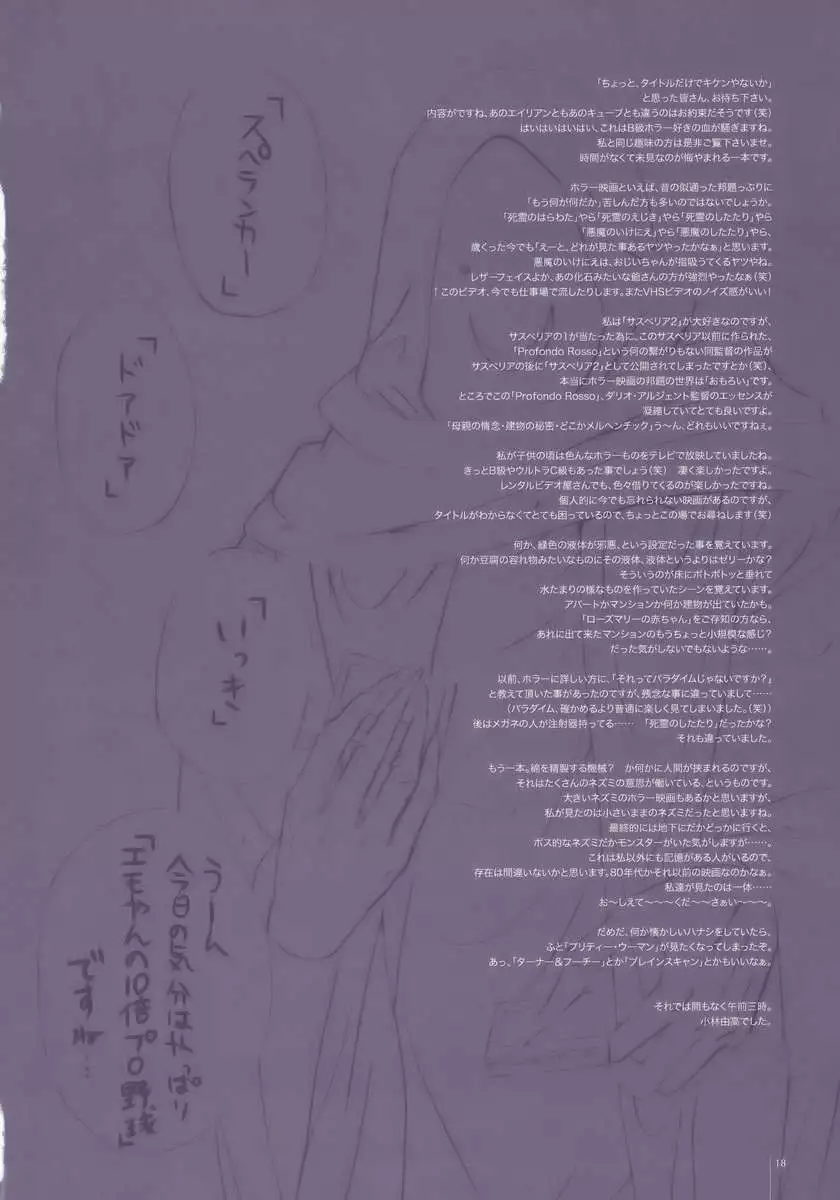 「ちょっと、タイトルだけでキケンやないか」
と思った皆さん、お待ち下さい。
内容がですね、あのエイリアンともあのキューブとも違うのはお約束だそうです(笑)
はいはいはいはい、これはB級ホラー好きの血が騒ぎますね。
私と同じ趣味の方は是非ご覧下さいませ。
時間がなくて未見なのが悔やまれる一本です。
ホラー映画といえば、昔の似通った邦題っぷりに
「もう何が何だか」苦しんだ方も多いのではないでしょうか。
「死霊のはらわた」やら「死霊のえじき」やら「死霊のしたたり」やら
「悪魔のいけにえ」やら「悪魔のしたたり」やら、
歳くった今でも「えーと、どれが見た事あるヤツやったかなぁ」と思います。
悪魔のいけにえは、おじいちゃんが指吸うてくるヤツやね。
レザーフェイスよか、あの化石みたいな爺さんの方が強烈やったなぁ(笑)
！このビデオ、今でも仕事場で流したりします。またVHSビデオのノイズ感がいい！
私は「サスペリア2」が大好きなのですが、
サスペリアの1が当たった為に、このサスペリア以前に作られた、
「Profondo Rosso」という何の繋がりもない同監督の作品が
サスペリアの後に「サスペリア2」として公開されてしまったですとか(笑)、
本当にホラー映画の邦題の世界は「おもろい」です。
ところでこの「Profondo Rosso」、ダリオ・アルジェント監督のエッセンスが
凝縮していてとても良いですよ。
「母親の情念・建物の秘密・どこかメルヘンチック」う〜ん、どれもいいですねぇ。
私が子供の頃は色んなホラーものをテレビで放映していましたね。
きっとB級やウルトラC級もあった事でしょう(笑)　凄く楽しかったですよ。
レンタルビデオ屋さんでも、色々借りてくるのが楽しかったですね。
個人的に今でも忘れられない映画があるのですが、
タイトルがわからなくてとても困っているので、ちょっとこの場でお尋ねします(笑)
何か、緑色の液体が邪悪、という設定だった事を覚えています。
何か豆腐の容れ物みたいなものにその液体、液体というよりはゼリーかな？
そういうのが床にボトボトッと垂れて
水たまりの様なものを作っていたシーンを覚えています。
アパートかマンションか何か建物が出ていたかも。
「ローズマリーの赤ちゃん」をご存知の方なら、
あれに出て来たマンションのもうちょっと小規模な感じ？
だった気がしないでもないような……。
以前、ホラーに詳しい方に、「それってパラダイムじゃないですか？」
と教えて頂いた事があったのですが、残念な事に違っていまして……
(パラダイム、確かめるより普通に楽しく見てしまいました。(笑))
後はメガネの人が注射器持ってる……　「死霊のしたたり」だったかな？
それも違っていました。
もう一本。綿を精製する機械？　か何かに人間が挟まれるのですが、
それはたくさんのネズミの意思が働いている、というものです。
大きいネズミのホラー映画もあるかと思いますが、
私が見たのは小さいままのネズミだったと思いますね。
最終的には地下にだかどっかに行くと、
ボス的なネズミだかモンスターがいた気がしますが……。
これは私以外にも記憶がある人がいるので、
存在は間違いないかと思います。80年代かそれ以前の映画なのかなぁ。
私達が見たのは一体……
お〜しえて〜〜〜くだ〜〜さぁい〜〜〜。
だめだ、何か懐かしいハナシをしていたら、
ふと「プリティー・ウーマン」が見たくなってしまったぞ。
あっ、「ターナー&フーチー」とか「ブレインスキャン」とかもいいなぁ。
それでは間もなく午前三時。
小林由高でした。
「スペランカー」
「ドアドア」
「いっき」
うーん
今日の気分はやっぱり
「エモやんの10倍プロ野球」
ですね…
18